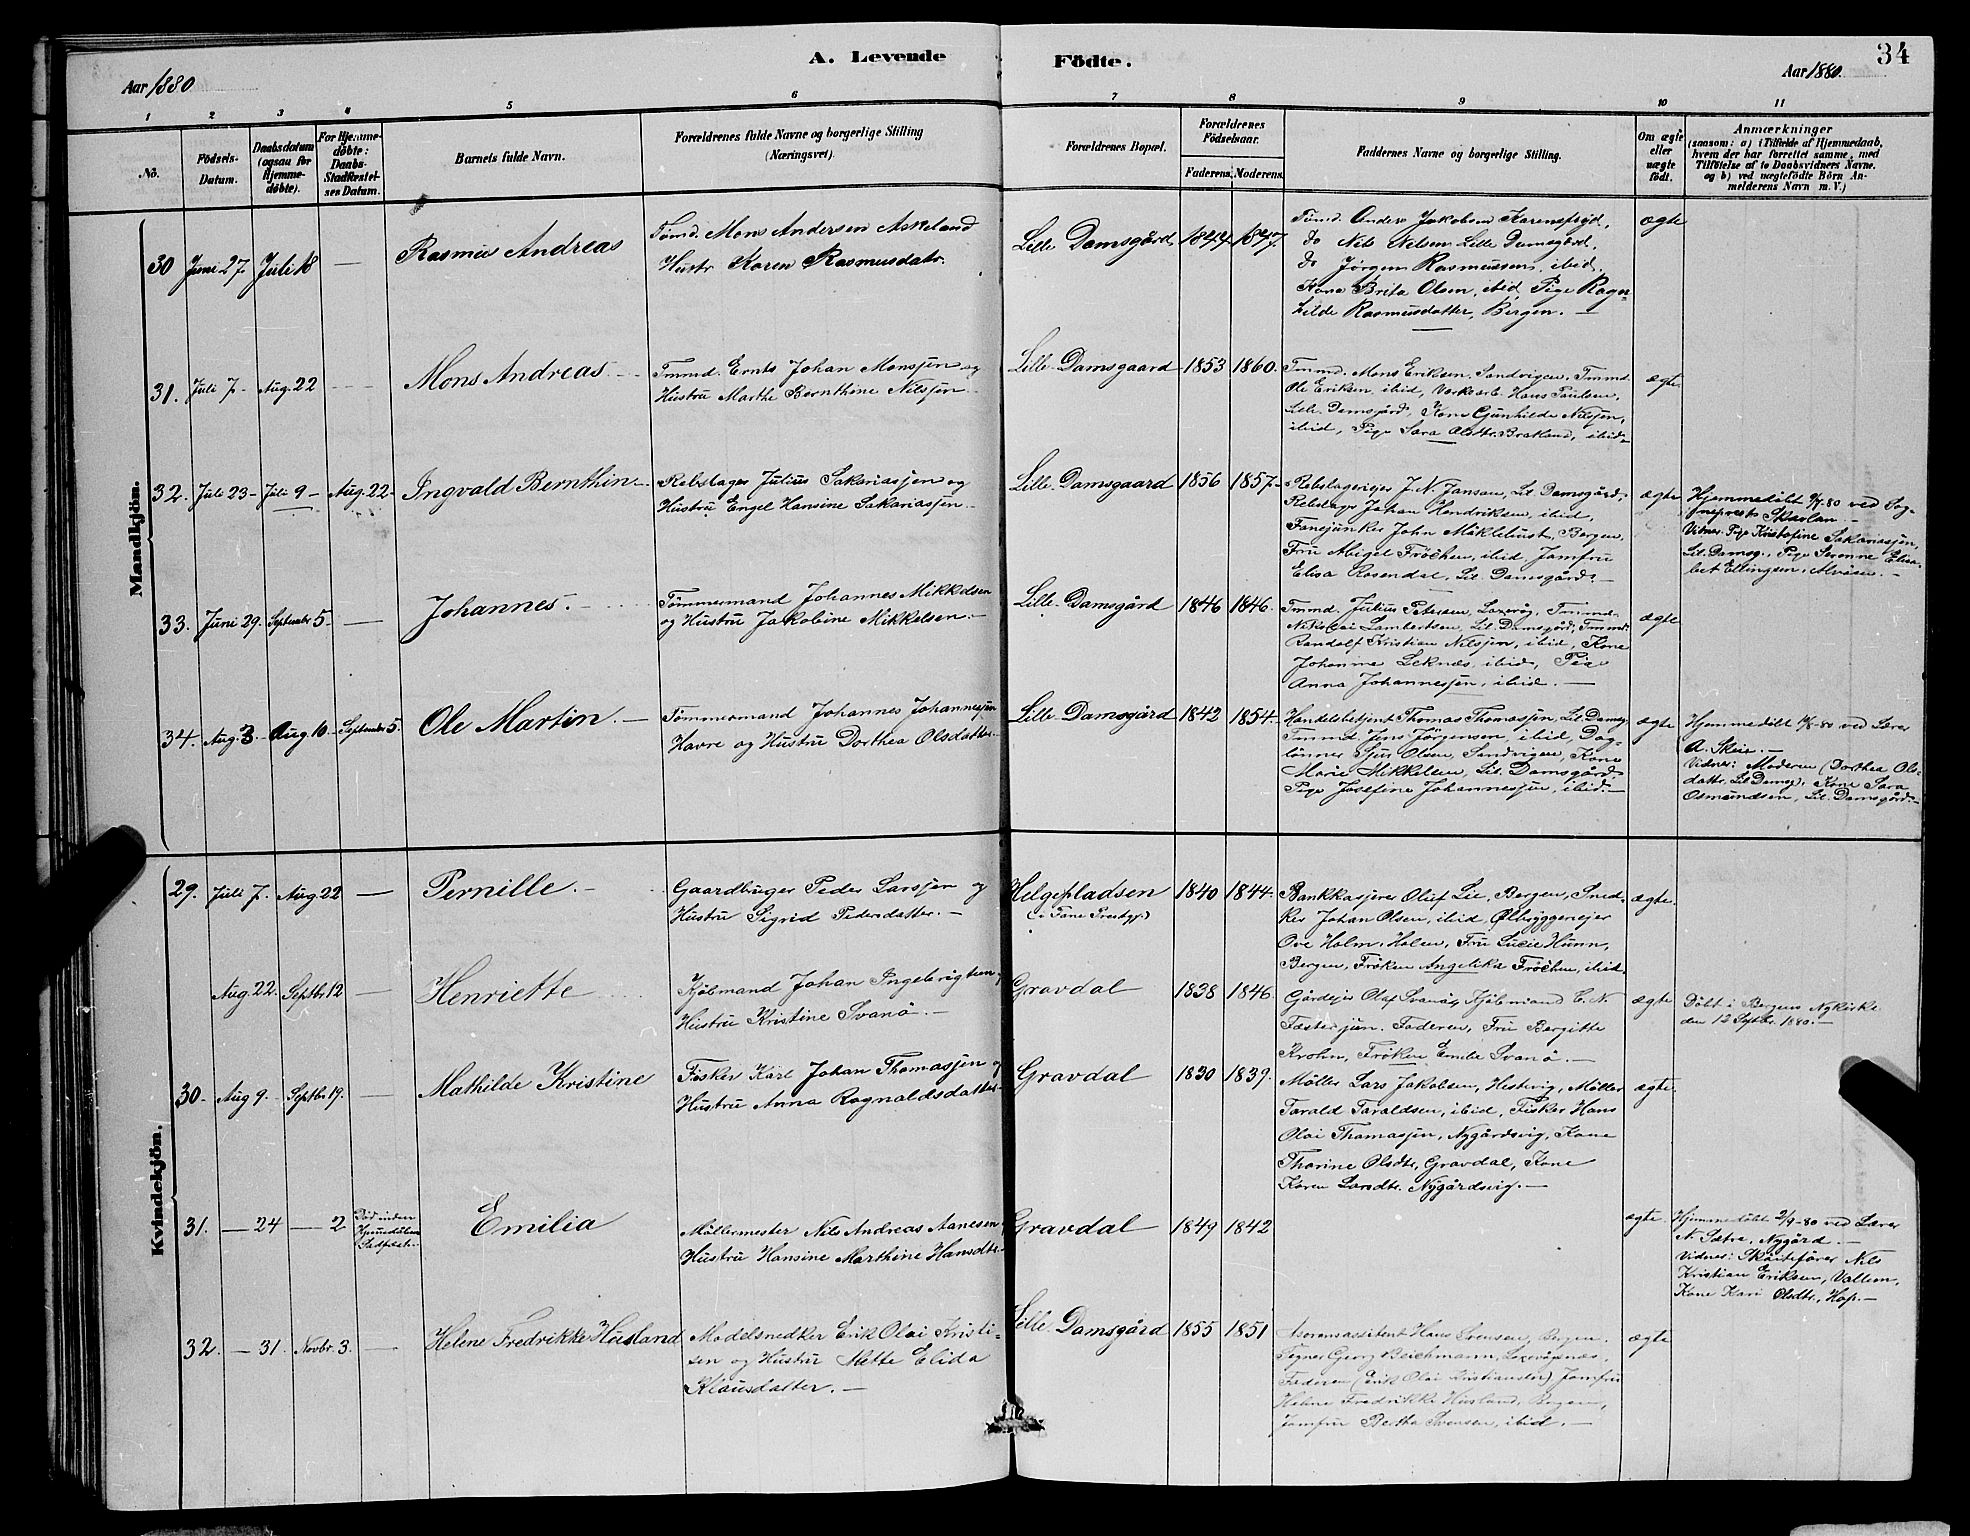 A. Levende Fødte.
34
Aar 1880
Aar 1880.
1 2 3 4 5 6 7 8 9 10 11
No.
Fødsels-
Datum.
Daabsdatum
(ogsaa for
Hjemme-
døbte).
For Hjemme-
døbte:
Daabs-
Stadfæstel-
ses Datum.
Barnets fulde Navn.
Forældrenes fulde Navne og borgerlige Stilling
(Næringsvei).
Forældrenes Bopæl.
Forældrenes
Fødselsaar.
Faderens. Moderens.
Faddernes Navne og borgerlige Stilling.
Om ægte
eller
uægte
født.
Anmærkninger
(saasom: a) i Tilfælde af Hjemmedaab,
hvem der har forrettet samme, med
Tilføielse af to Daabsvidners Navne.
og b) ved uægtefødte Børn An-
melderens Navn m. V.)
Mandkjøn.
30 Juni 27 Juli 18 — Rasmus Andreas
Tømd. Mons Andersen Askeland
Hustr. Karen Rasmusdatr.
Lille Damsgård 1844 1847.
Tømd. Anders Jakobsen
Do Nils Nilsen Lille Damsgård,
Do Jørgen Rasmussen, ibid.
Kone Brita Olsen, ibid, Pige Ragn-
hilde Rasmusdatter, Bergen. —
ægte
31. Juli 7. Aug. 22 Mons Andreas.
Tmmd. Ernts Johan Monsjen og
Hustru Marthe Bernthine Nilsjen
Lille Damsgaard 1853 1860.
Tmmd. Mons Eriksen, Sandvigen, Tmmd.
Ole Eriksen, ibid, Værksarb. Hans Paulsen,
Lille Damsgård, Kone Gunhilde Nilsjen,
ibid, Pige Sara Olsdtr. Brekland, ibid.
ægte
32. Juli 23 — Juli 9 — Aug. 22 — Ingvald Bernthin
Rebslager Julius Sakariassjen og
Hustru Engel Hansine Sakariassjen
Lille Damsgaard 1856 1857.
Rebslagereier J. N. Jansen, Lil. Damsgård,
Rebslager Johan Hendriksen, ibid,
Fanejunker John Myklebust, Bergen,
Fru Abigel Frøchen, ibid, Jomfru
Elisa Rosendal, Lil. Damsgård. —
ægte
Hjemmedøbt 9/7-80 ved Sog-
neprest Skavlan. —
Vidner: Pige Kristofine Sakariasjen,
Lil. Damsg., Pige Serenne Elisa-
bet Ellingsen, Alvøen. —
33. Juni 29. Septembr 5. — Johannes. —
Tømmermand Johannes Mikkelsen
og Hustru Jakobine Mikkelsen. —
Lille Damsgård 1846 1846.
Tmmd. Julius Petersen, Laxevåg, Tmmd.
Nikolai Lambertsen, Lil. Damsgård, Tmmd.
Randolf Kristian Nilsjen, ibid, Kone
Johanne Leknes, ibid, Pige
Anna Johannesjen, ibid. —
ægte
34. Aug. 3. Aug. 10 — Septembr 5. Ole Martin. —
Tømmermand Johannes Johannesjen
Havre og Hustru Dorthea Olsdatter. —
Lille Damsgård 1842 1854.
Handelsbetjent Thomas Thomasjen, Lil. Damsg.
Tmmd. Jens Jørgensen, ibid, Dag-
lønner Sjur Olsen, Sandvigen, Kone
Marie Mikkelsen, Lil. Damsgård.
Pige Josefine Johannesjen, ibid. —
ægte
Hjemmedøbt 10/8-80 ved Lærer
A. Skeie. —
Vidner: Moderen (Dorthea Ols-
datter, Lil. Damsg.), Kone Sara
Osmundsen, Lil. Damsgård. —
Kvindekjøn.
29. Juli 7. Aug. 22 — Pernille. —
Gaardbruger Peder Larsjen og
Hustru Sigrid Pedersdatter. —
Helgepladsen
(i Fane Prestgj.)
1840 1844.
Bankkasjerer Oluf Lie, Bergen, Sned-
ker Johan Olsen, ibid, Ølbryggerieier
Ove Holm, Holen, Fru Lucie Hunn,
Bergen, Frøken Angelika Frøchen, ibid.
ægte.
Aug. 22. Septbr. 12 — Henriette
Kjøbmand Johan Ingebrigtsen
Hustru Kristine Svanø. —
Gravdal 1838 1846.
Gårdejer Olaf Svanø, Kjøbmand C. N.
Faster jun. Faderen, Fru Bergitte
Krohn, Frøken Emilie Svanø. —
ægte
Døbt i Bergens Nykirke
den 12 Septbr. 1880. —
30. Aug 9. Septbr 19. — Mathilde Kristine
Fisker Karl Johan Thomasjen og
Hustru Anna Ragnaldsdatter —
Gravdal 1830 1839.
Møller Lars Jakobsen, Hestevig, Møller
Tarald Taraldsen, ibid, Fisker Hans
Olai Thomasjen, Nygårdsvig, Kone
Thorine Olsdtr, Gravdal, Kone
Karen Larsdtr. Nygårdsvig. —
ægte.
31. — 24 — 2 Død inden
Hjemmedåbens
Stadfæst.
Emilia
Møllermester Nils Andreas Aanesen
Hustru Hansine Marthine Hansdtr. —
Gravdal 1849 1842
ægte.
Hjemmedøbt 2/9-80 ved Lærer
N. Sætre, Nygård. —
Vidner: Skøitefører Nils
Kristian Eriksen, Vallem,
Kone Kari Olsdtr., Hop. —
32. — 31. Novbr. 3. — Helene Fredrikke Husland
Modelsnedker Erik Olai Kristi-
sen og Hustru Mette Elida
Klausdatter. —
Lille Damsgård 1855 1851
Hans Svensen, Bergen.
Tegner Georg Beichmann, Laxevågsnæs,
Faderen (Erik Olai Kristiansen) Jomfru
Helene Fredrikke Husland, Bergen,
Jomfru Bertha Svensen, ibid. —
ægte